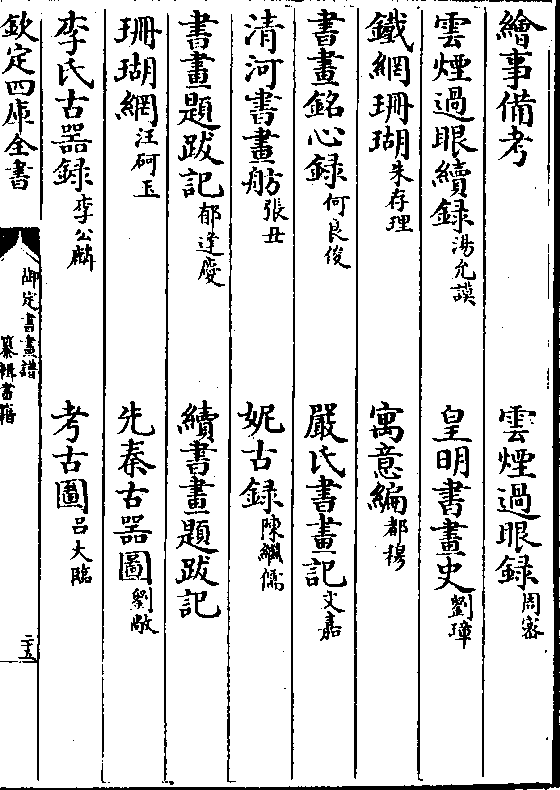 繪事備考　雲煙過眼録周密
雲煙過眼續録湯允謨　皇明書畫史劉璋
鐵網珊瑚朱存理　寓意編都穆
書畫銘心録何良俊　嚴氏書畫記文嘉
清河書畫舫張丑　妮古録陳繼儒
書畫題跋記郁逢慶　續書畫題跋記
珊瑚網汪砢玉　先秦古器圖劉敞
李氏古器録李公麟　考古圖呂大臨
欽定四庫全書　御定書畫譜
纂輯書籍　二十五